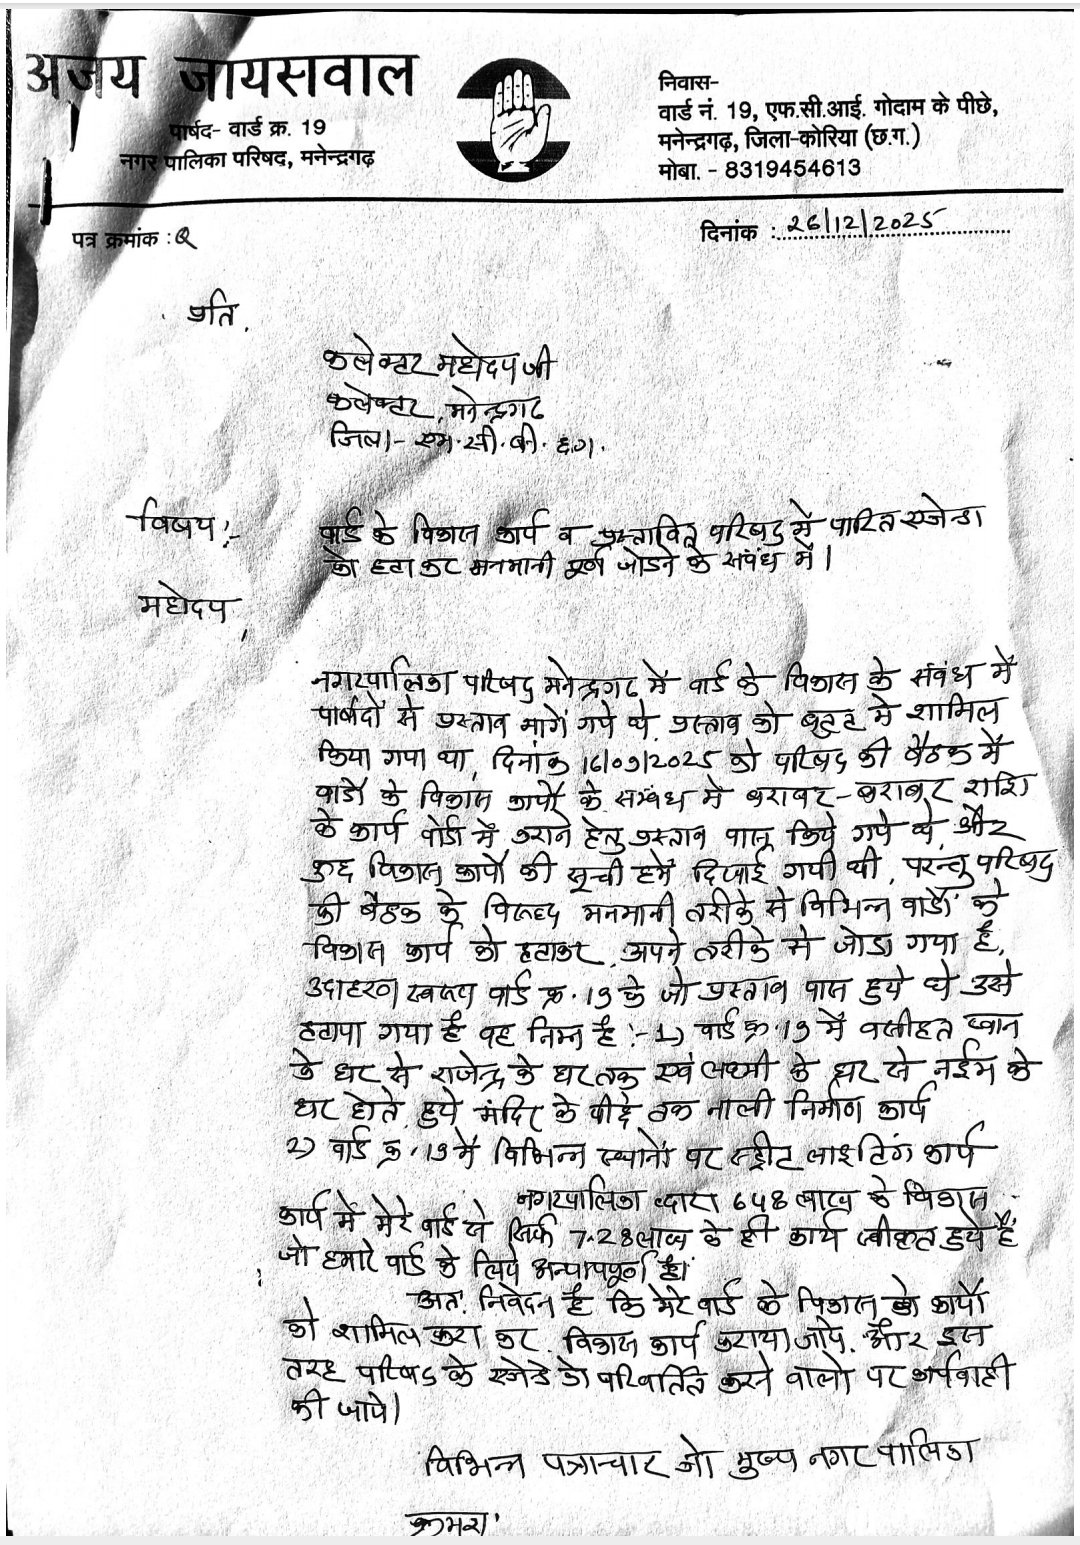 अजय जायसवाल
पार्षद- वार्ड क्र. 19
नगर पालिका परिषद, मनेन्द्रगढ़
निवास-
वार्ड नं. 19, एफ.सी.आई. गोदाम के पीछे,
मनेन्द्रगढ़, जिला-कोरिया (छ.ग.)
मोबा. - 8319454613
पत्र क्रमांक :
दिनांक : 26/12/2025
प्रति,
कलेक्टर महोदय जी
कलेक्टर, मनेन्द्रगढ
जिला- एम.सी.बी. छ.ग.
विषय:- वार्ड के विकास कार्य व प्रस्तावित परिषद में पारित एजेन्डा
को हटा कर मनमानी पूर्ण जोडने के संबंध में।
महोदय,
नगरपालिका परिषद मनेन्द्रगढ में वार्ड के विकास के संबंध में
पार्षदों से प्रस्ताव मांगें गये थे, प्रस्ताव को में शामिल
किया गया था, दिनांक 16/09/2025 को परिषद की बैठक में
वार्डो के विकास कार्यो के सम्बंध में बराबर-बराबर राशि
के कार्य वोर्डो में कराने हेतु प्रस्ताव पास किये गये थे, और
कुछ विकास कार्यो की सूची हमें दिखाई गयी थी, परन्तु परिषद
की बैठक के विरूध्द मनमानी तरीके से विभिन्न वार्डो के
विकास कार्य को हटाकर, अपने तरीके से जोडा गया है,
उदाहरण स्वरूप वार्ड क्र.19 के जो प्रस्ताव पास हुये थे उसे
हटाया गया है वह निम्न है:- 1) वार्ड क्र.19 में खान
के घर से राजेन्द्र के घर तक एवं लक्ष्मी के घर से नईम के
घर होते हुये मंदिर के पीछे तक नाली निर्माण कार्य
2) वार्ड क्र.19 में विभिन्न स्थानों पर स्ट्रीट लाइटिंग कार्य
नगरपालिका द्वारा 648 लाख के विकास
कार्य में मेरे वार्ड से सिर्फ 7.28 लाख के ही कार्य स्वीकृत हुये है
जो हमारे वार्ड के लिये अन्यायपूर्ण है।
अतः निवेदन है कि मेरे वार्ड के विकास के कार्यो
को शामिल करा कर, विकास कार्य कराया जाये, और इस
तरह परिषद के एजेन्डे को परिवर्तित करने वालो पर कार्यवाही
की जाये।
विभिन्न पत्राचार को मुख्य नगरपालिका
क्रमशः